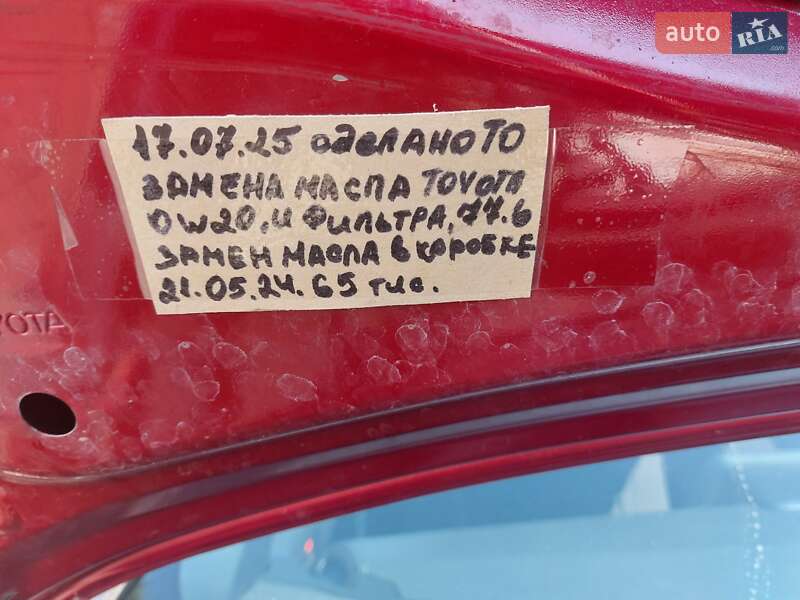 auto RIA.com
17.07.25 сделано ТО
ЗАМЕНА МАСЛА TOYOTA
0W20, И ФИЛЬТРА, 77.6
ЗАМЕН МАСЛА В КОРОБКЕ
21.05.24. 65 тис.
YOTA